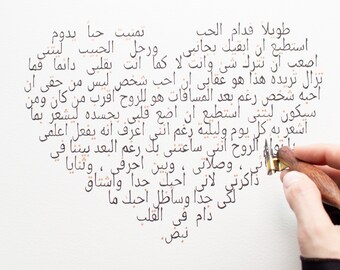 طويلا قدام الحب تمنيت حبا يدوم
استطيع ان ابقيك بجانبي ورحل الحبيب ليتني
اصعب ان تترك شئ وانت لا كما انت بقلبي دائما فما
تزال تريده هذا هو عقابي ان احب شخص ليس من حقى ان
احبه شخص رغم بعد المسافات هو للروح اقرب من كان ومن
سيكون ليتنى استطيع ان اضع قلبى بجسده ليشعر بما
اشعر به كل يوم وليلية رغم انني اعرف انه يفعل اعلمى
الروح اننى ساعتنى بك رغم البعد بيننا في
وصلاتى ، وبين احرفى ، وثنايا
ذاكرتي لانى احبك جدا واشتاق
لكى جدا وساظل احبك ما
دام فى القلب
نبض.